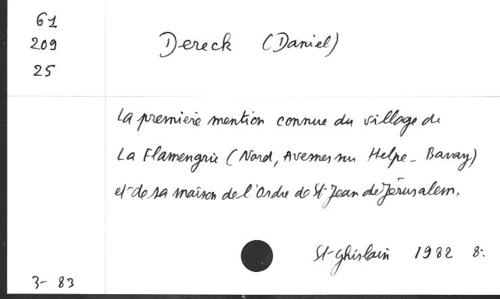 61
209
25
Dereck (Daniel)
La première mention connue du village de
La Flamengrie (Nord, Avesnes sur Helpe - Bavay)
et de sa maison de l'Ordre de St Jean de Jérusalem.
St-Ghislain 1982 8.
3- 83